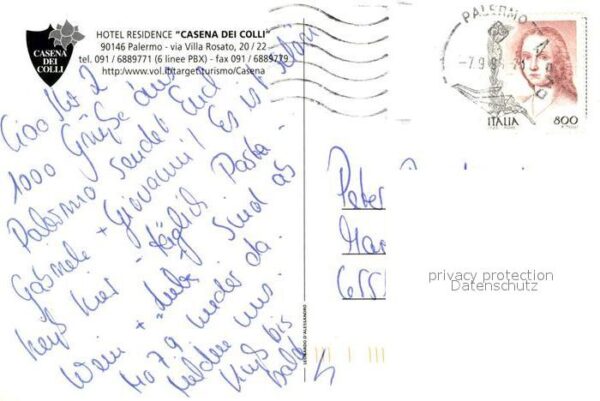 CASENA
DEI
COLLI
HOTEL RESIDENCE "CASENA DEI COLLI"
90146 Palermo - via Villa Rosato, 20 / 22
tel. 091 / 6889771 (6 linee PBX) - fax 091 / 6889779
http:/www.vol.it/argenturismo/Casena
Ciao Ihr 2
1000 Grüße aus
Palermo sendet Euch
Gabriele + Giovanni! Es ist
heiß hier - täglich Pasta -
Wein + Sind ab
Mo 7.9 wieder da.
Melden uns.
Kuß bis
bald
LEONARDO D'ALESSANDRO
PALERMO
-7.9.9
ITALIA
800
Peter
Mar
655
privacy protection
Datenschutz